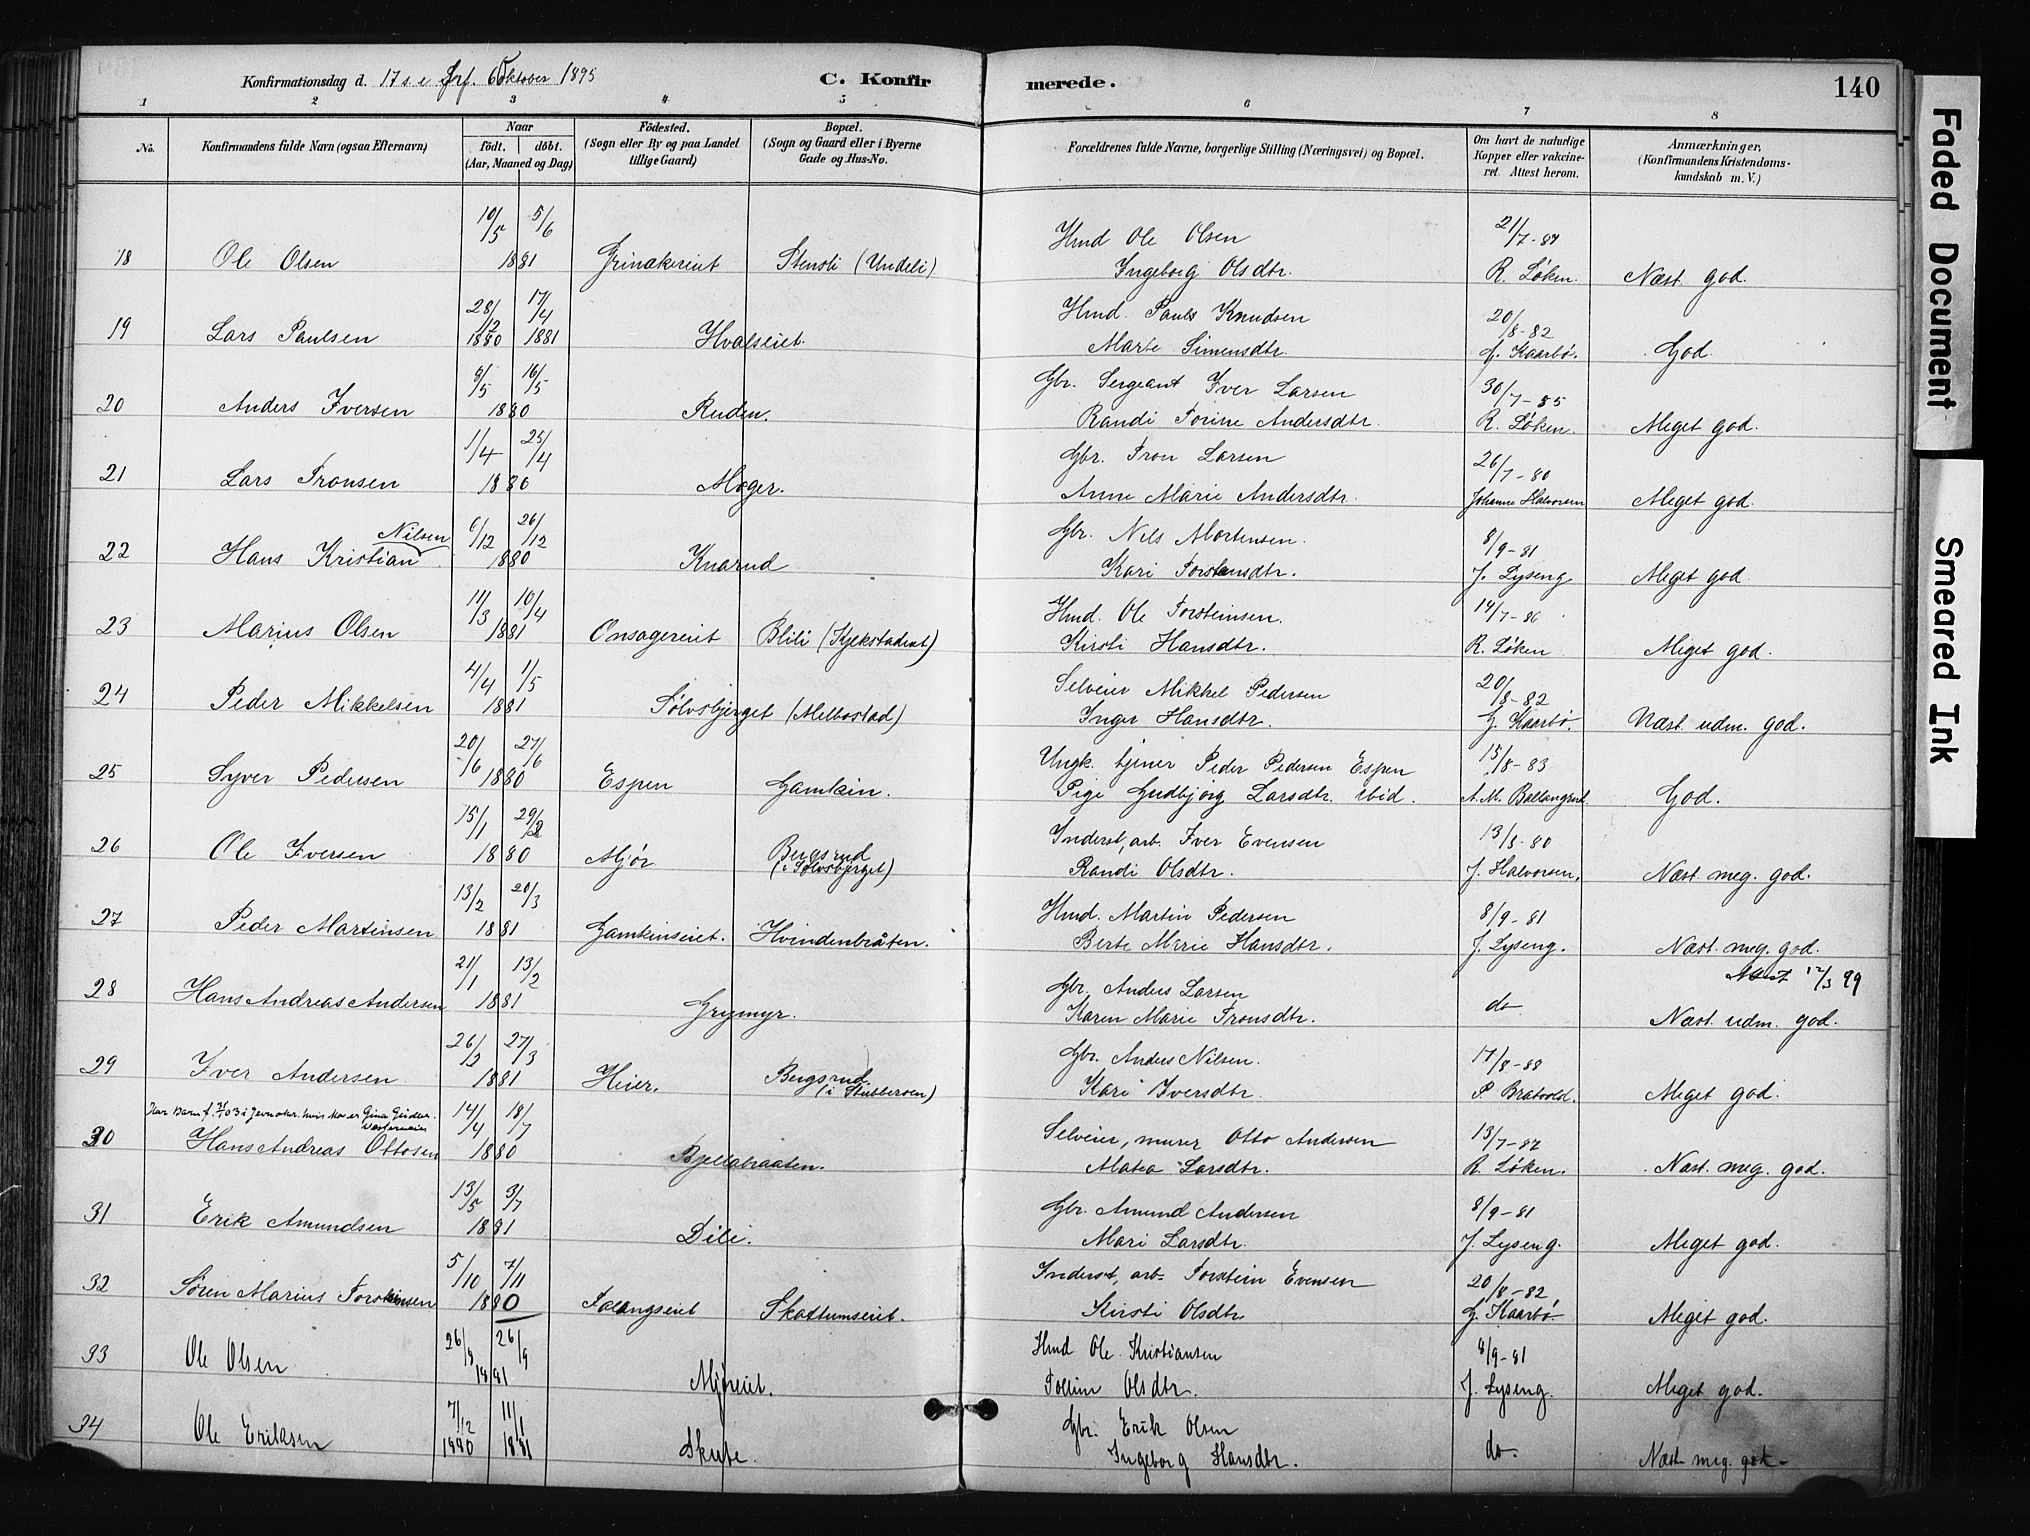 Konfirmationsdag d. 17 s. e. Trf. 6 Oktober 1895 C. Konfirmerede. 140
1 2 3 4 5 6 7 8
No. Konfirmandens fulde Navn (ogsaa Efternavn) Naar födt. döbt. (Aar, Maaned og Dag) Födested. (Sogn eller By og paa Landet tillige Gaard) Bopæl. (Sogn og Gaard eller i Byerne Gade og Hus-No. Forældrenes fulde Navne, borgerlige Stilling (Næringsvei) og Bopæl. Om havt de naturlige Kopper eller vakcineret. Attest herom. Anmærkninger. (Konfirmandens Kristendomskundskab m. V.)
10/5 5/6 Hmd Ole Olsen 21/7-87
18 Ole Olsen 1881 Grinakereiet Stensli (Undeli) Ingeborg Olsdtr. R. Løken. Næst. god.
28/12 17/4 Hmd. Pauls Knudsen 20/8-82
19 Lars Paulsen 1880 1881 Hvalseiet. Marte Simensdtr. G. Kaarbø. God.
9/5 16/5 Gbr. Sergeant Iver Larsen 30/7-85
20 Anders Iversen 1880 Ruden. Randi Torine Andersdtr. R. Løken. Meget god.
1/4 25/4 Gbr. Tron Larsen 26/7-80
21 Lars Tronsen 1880 Moger. Anne Marie Andersdtr. Johanne Halvorsen Meget god.
Nilsen 6/12 26/12 Gbr. Nils Mortensen. 8/9-81
22 Hans Kristian 1880 Knarud Kari Torstensdtr. J. Lyseng Meget god.
11/3 10/4 Hmd. Ole Torsteinsen. 14/7-86
23 Marius Olsen 1881 Onsagereiet Blili (Kjekstadeiet) Kirsti Hansdtr. R. Løken Meget god.
4/4 1/5 Selveier Mikkel Pedersen 20/8-82
24 Peder Mikkelsen 1881 Sølvsbjerget (Melbostad) Inger Hansdtr. G. Kaarbø. Næst. udm. god.
20/6 27/6 Ungk. tjener Peder Pedersen Espen 15/8-83
25 Syver Pedersen 1880 Espen Gamkin. Pige Gudbjørg Larsdtr. ibid. A. M. Ballangrud God.
15/1 29/2 Inderst, arb. Iver Evensen 13/8-80
26 Ole Iversen 1880 Mjør Bergsrud (i Sølvsbjerget) Randi Olsdtr. J. Halvorsen. Næst. meg. god.
13/2 20/3 Hmd. Martin Pedersen 8/9-81
27 Peder Martinsen 1881 Gamkinseiet. Hvindenbråten. Berte Marie Hansdtr. J. Lyseng. Næst. meg. god.
21/1 13/2 Gbr. Anders Larsen 12/3 99
28 Hans Andreas Andersen 1881 Grymyr. Karen Marie Tronsdtr. do Næst. udm. god.
26/2 27/3 Gbr. Anders Nilsen. 17/8-88
29 Iver Andersen 1881 Heier. Bergsrud (i Stubberøen) Kari Iversdtr. P. Bratvold. Meget god.
Har Barn f. 03 i Jevnaker. hvis Mor er Gina 14/4 18/7 Selveier, murer Otto Andersen 13/7-87
30 Hans Andreas Ottosen 1880 Bjellabraaten. Matea Larsdtr. R. Løken. Næst. meg. god.
13/5 3/7 Gbr. Amund Andersen 8/9-81
31 Erik Amundsen 1881 Dili. Mari Larsdtr. J. Lyseng. Meget god.
5/10 7/11 Inderst, arb. Torstein Evensen 20/8-82
32 Søren Marius Torsteinsen 1880 Falangseiet Skattumseiet. Kirsti Olsdtr. G. Kaarbø. Meget god.
26/8 26/9 Hmd Ole Kristiansen 8/9-81
33 Ole Olsen 1881 Mjøreiet. Olsdtr. J. Lyseng. Meget god.
7/12 11/1 Gbr. Erik Olsen
34 Ole Eriksen 1880 1881 Skute. Ingeborg Hansdtr. do. Næst meg. god.
Faded Document
Smeared Ink